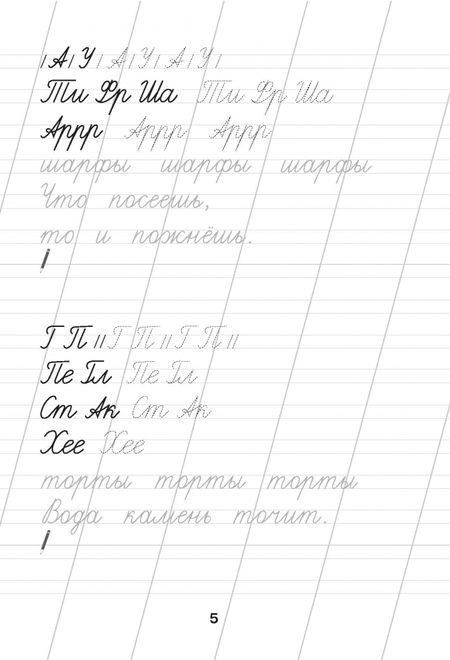 / А / У / А / У / А / У /
Ти Фр Ша Ти Фр Ша
Аррр Аррр Аррр
шарфы шарфы шарфы
Что посеешь,
то и пожнёшь.
Г П // Г П // Г П //
Пе Гл Пе Гл
Ст Ак Ст Ак
Хее Хее
торты торты торты
Вода камень точит.
5